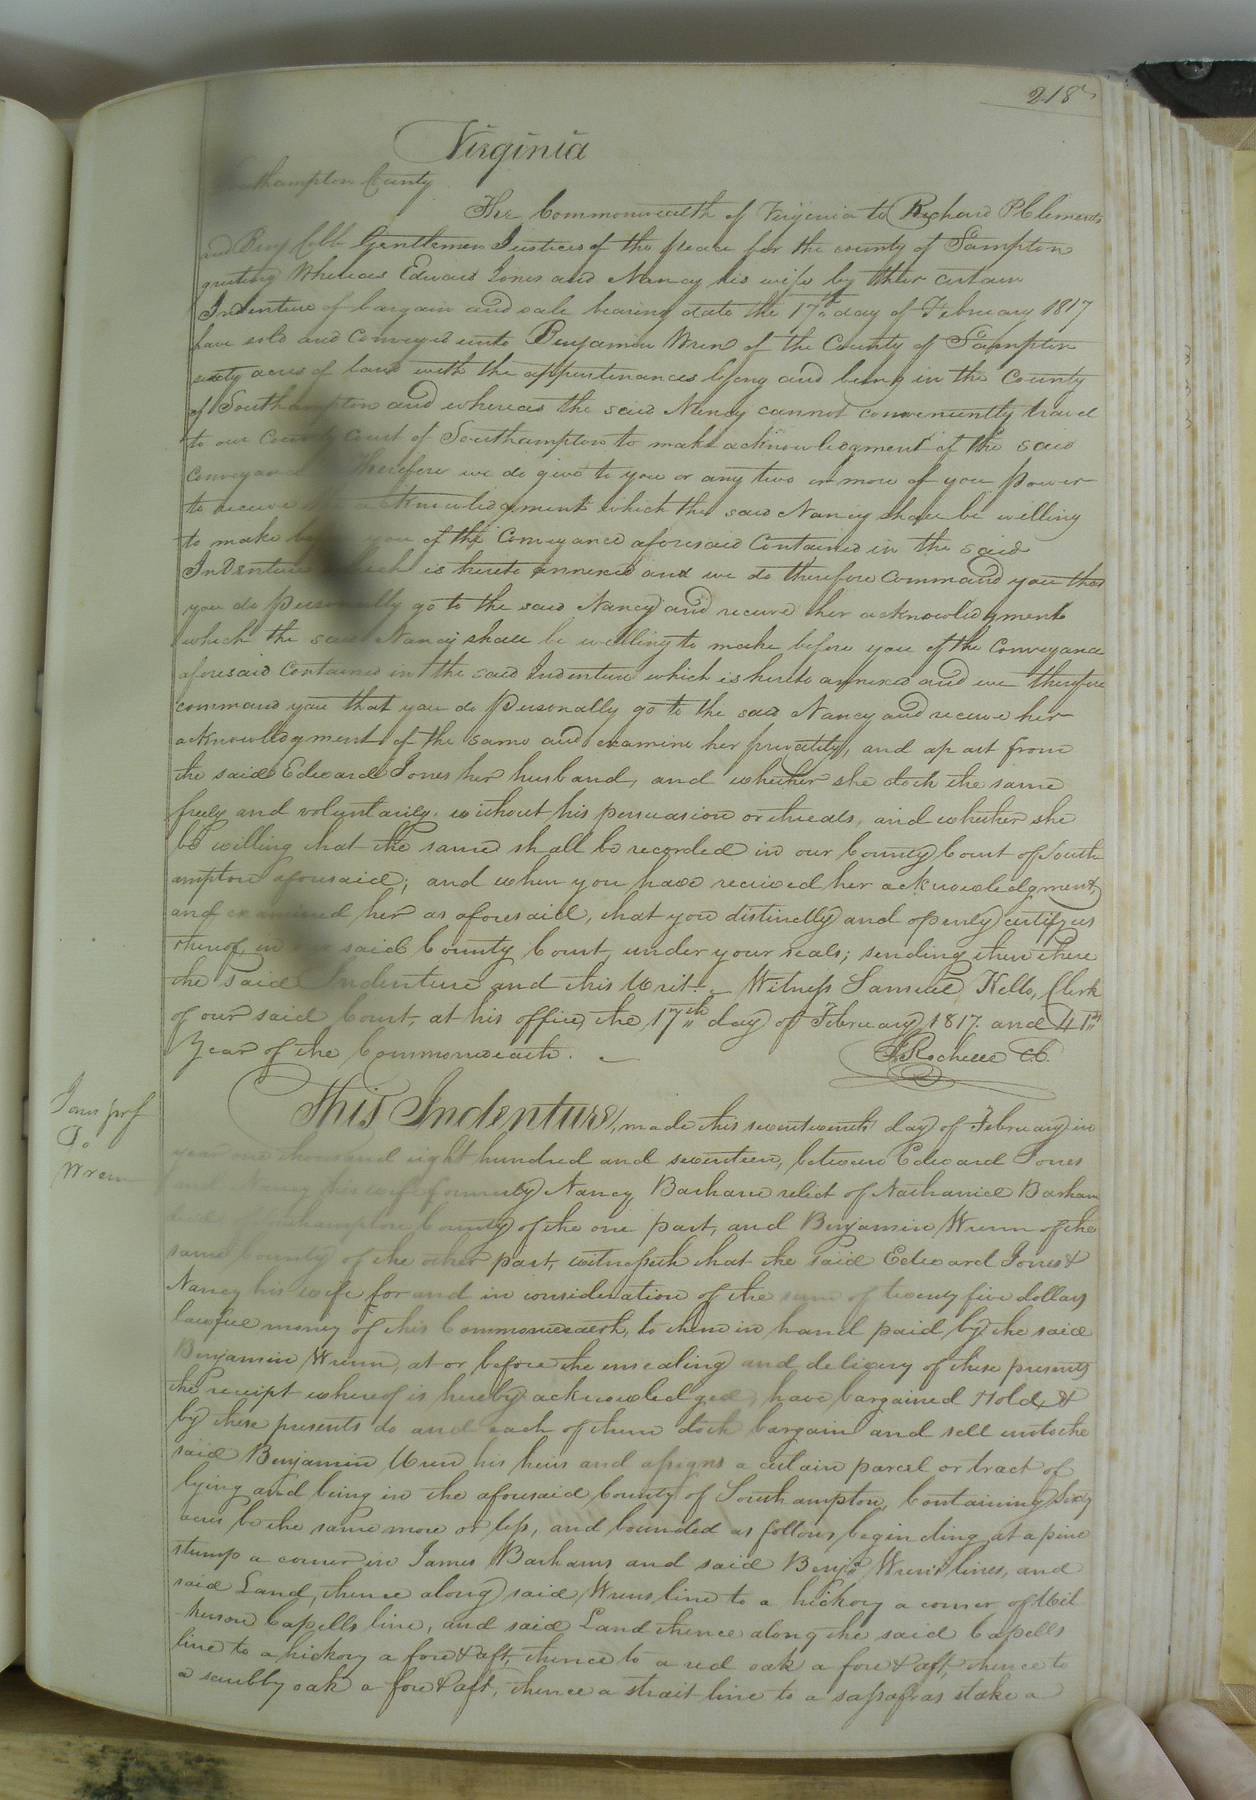 218
Virginia
Southampton County
The Commonwealth of Virginia to Richard P Clements
and Benj Cobb Gentlemen Justices of the peace for the county of Sampton
greeting Whereas Edward Jones and Nancy his wife by their certain
Indenture of bargain and sale bearing date the 17th day of February 1817
have sold and Conveyed unto Benjamin Wren of the County of Sampton
sixty acres of land with the appurtenances lyeng and being in the County
of Southampton and whereas the said Nancy cannot conveniently travel
to our County Court of Southampton to make acknowledgment of the said
Conveyance Therefore we do give to you or any two or more of you power
to receive the acknowledgment which the said Nancy shall be willing
to make before you of the Conveyance aforesaid Contained in the said
Indenture which is hereto annexed and we do therefore Command you that
you do personally go to the said Nancy and receive her acknowledgment
which the said Nancy shall be willing to make before you of the Conveyance
aforesaid Contained in the said Indenture which is hereto annexed and we therefore
command you that you do Personally go to the said Nancy and receive her
acknowledgment of the same and examine her privately, and apart from
the said Edward Jones her husband, and whether she doth the same
freely and voluntarily, without his persuasion or threats, and whether she
be willing that the same shall be recorded in our County Court of South
ampton aforesaid; and when you have received her acknowledgment,
and examined her as aforesaid, that you distinctly and openly certify us
thereof, in our said County Court, under your seals; sending then there
the said Indenture and this Writ. Witness Samuel Kello, Clerk
of our said Court, at his office, the 17th day of February 1817. and 41st
Year of the Commonwealth.
J Rochelle CC
Jones
To
Wren
This Indenture, made this seventeenth day of February in
year one thousand eight hundred and seventeen, between Edward Jones
and Nancy his wife formerly Nancy Barham relict of Nathaniel Barham
decd of Southampton County of the one part, and Benjamin Wrenn of the
same County of the other part, witnesseth that the said Edward Jones &
Nancy his wife for and in consideration of the sum of twenty five dollars
lawful money of this Commonwealth, to them in hand paid by the said
Benjamin Wrenn, at or before the ensealing and delivery of these presents
the receipt whereof is hereby acknowledged, have bargained & sold, &
by these presents do and each of them doth bargain and sell unto the
said Benjamin Wren his heirs and assigns a certain parcel or tract of
lying and being in the aforesaid County of Southampton, Containing Sixty
acres be the same more or less, and bounded as follows beginding at a pine
stump a corner in James Barhams and said Benja Wren's lines, and
said Land, thence along said Wrens line to a hickory a corner of Wil
kerson Capells line, and said Land thence along the said Capells
line to a hickory a fore & aft, thence to a red oak a fore & aft, thence to
a scrubby oak a fore & aft, thence a strait line to a sassafras stake a